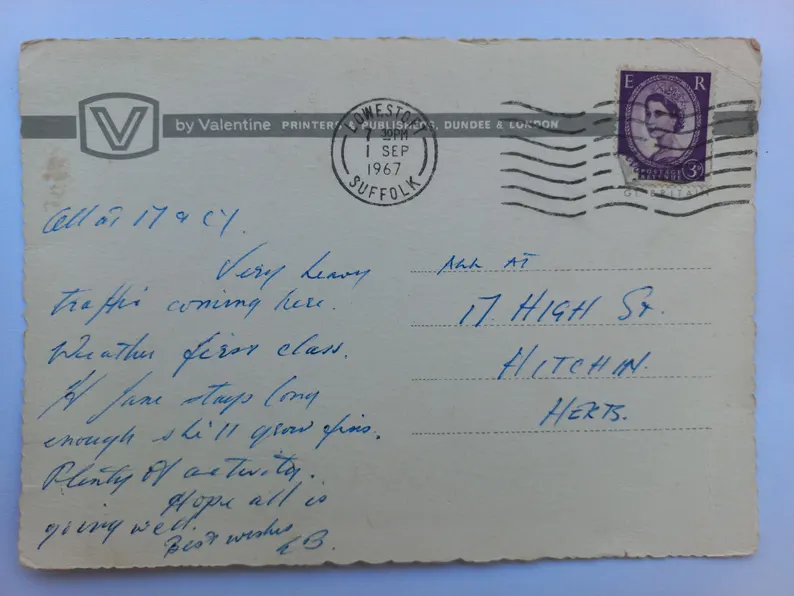 V
by Valentine PRINTERS & PUBLISHERS, DUNDEE & LONDON
LOWESTOFT
30PM
1 SEP
1967
SUFFOLK
E R
POSTAGE
REVENUE
3D
OF BRITAIN
All at 17
Very heavy
traffic coming here.
Weather first class.
If Jane stays long
enough she'll grow fins.
Plenty of activity.
Hope all is
going well.
Best wishes
B.
ALL AT
17 HIGH ST.
HITCHIN.
HERTS.